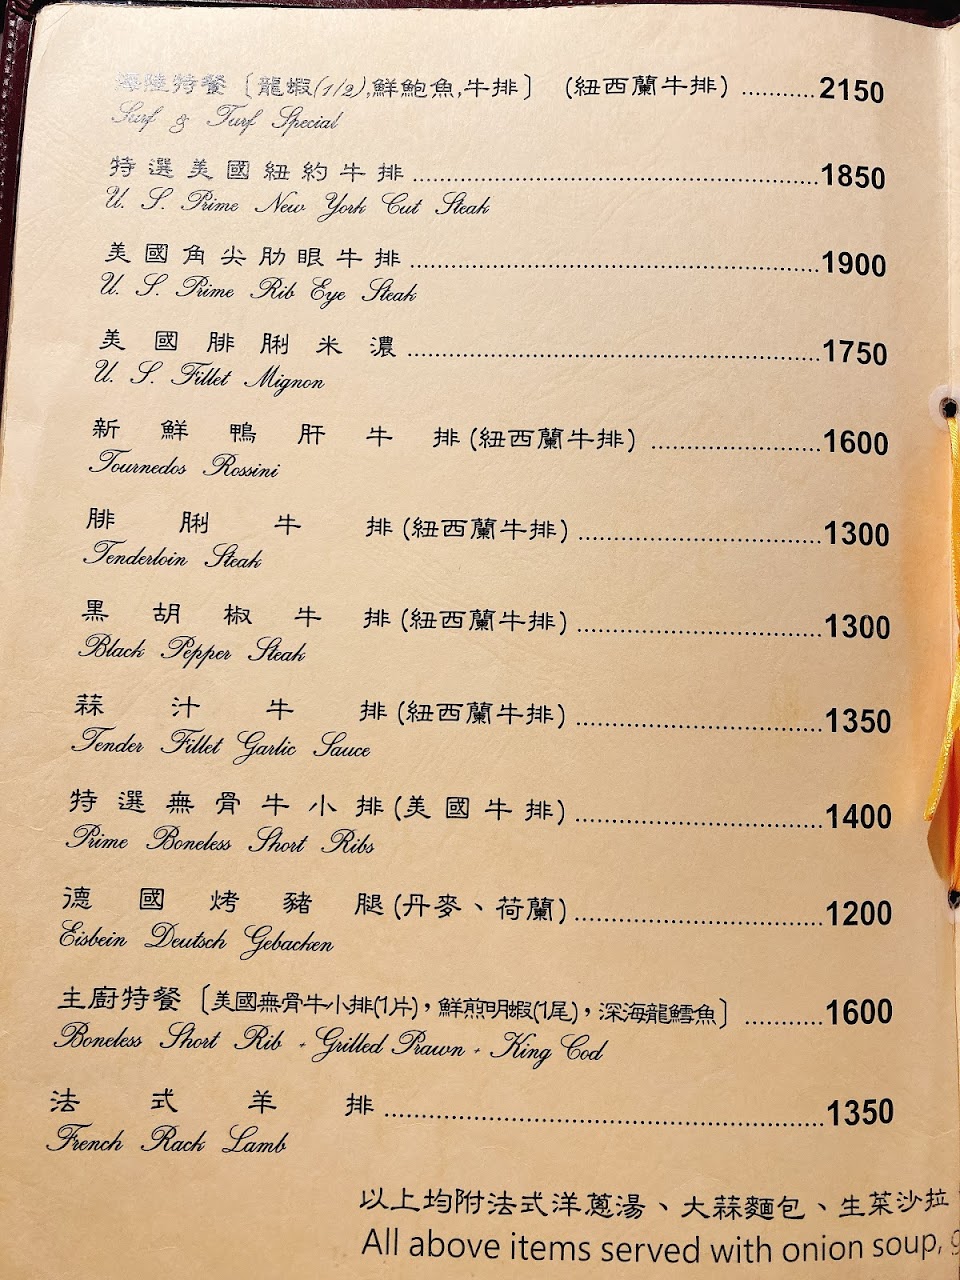 海陸特餐〔龍蝦(1/2),鮮鮑魚,牛排〕 (紐西蘭牛排) ...........2150
Surf & Turf Special
特選美國紐約牛排 ..........1850
U. S. Prime New York Cut Steak
美國角尖肋眼牛排 ..........1900
U. S. Prime Rib Eye Steak
美國腓脷米濃 ..........1750
U. S. Fillet Mignon
新鮮鴨肝牛排(紐西蘭牛排) ..........1600
Tournedos Rossini
腓脷牛排(紐西蘭牛排) ..........1300
Tenderloin Steak
黑胡椒牛排(紐西蘭牛排) ..........1300
Black Pepper Steak
蒜汁牛排(紐西蘭牛排) ..........1350
Tender Fillet Garlic Sauce
特選無骨牛小排(美國牛排) ..........1400
Prime Boneless Short Ribs
德國烤豬腿(丹麥、荷蘭) ..........1200
Eisbein Deutsch Gebacken
主廚特餐〔美國無骨牛小排(1片)，鮮煎明蝦(1尾)，深海龍鱈魚〕 ..........1600
Boneless Short Rib + Grilled Prawn + King Cod
法式羊排 ..........1350
French Rack Lamb
以上均附法式洋蔥湯、大蒜麵包、生菜沙拉
All above items served with onion soup,